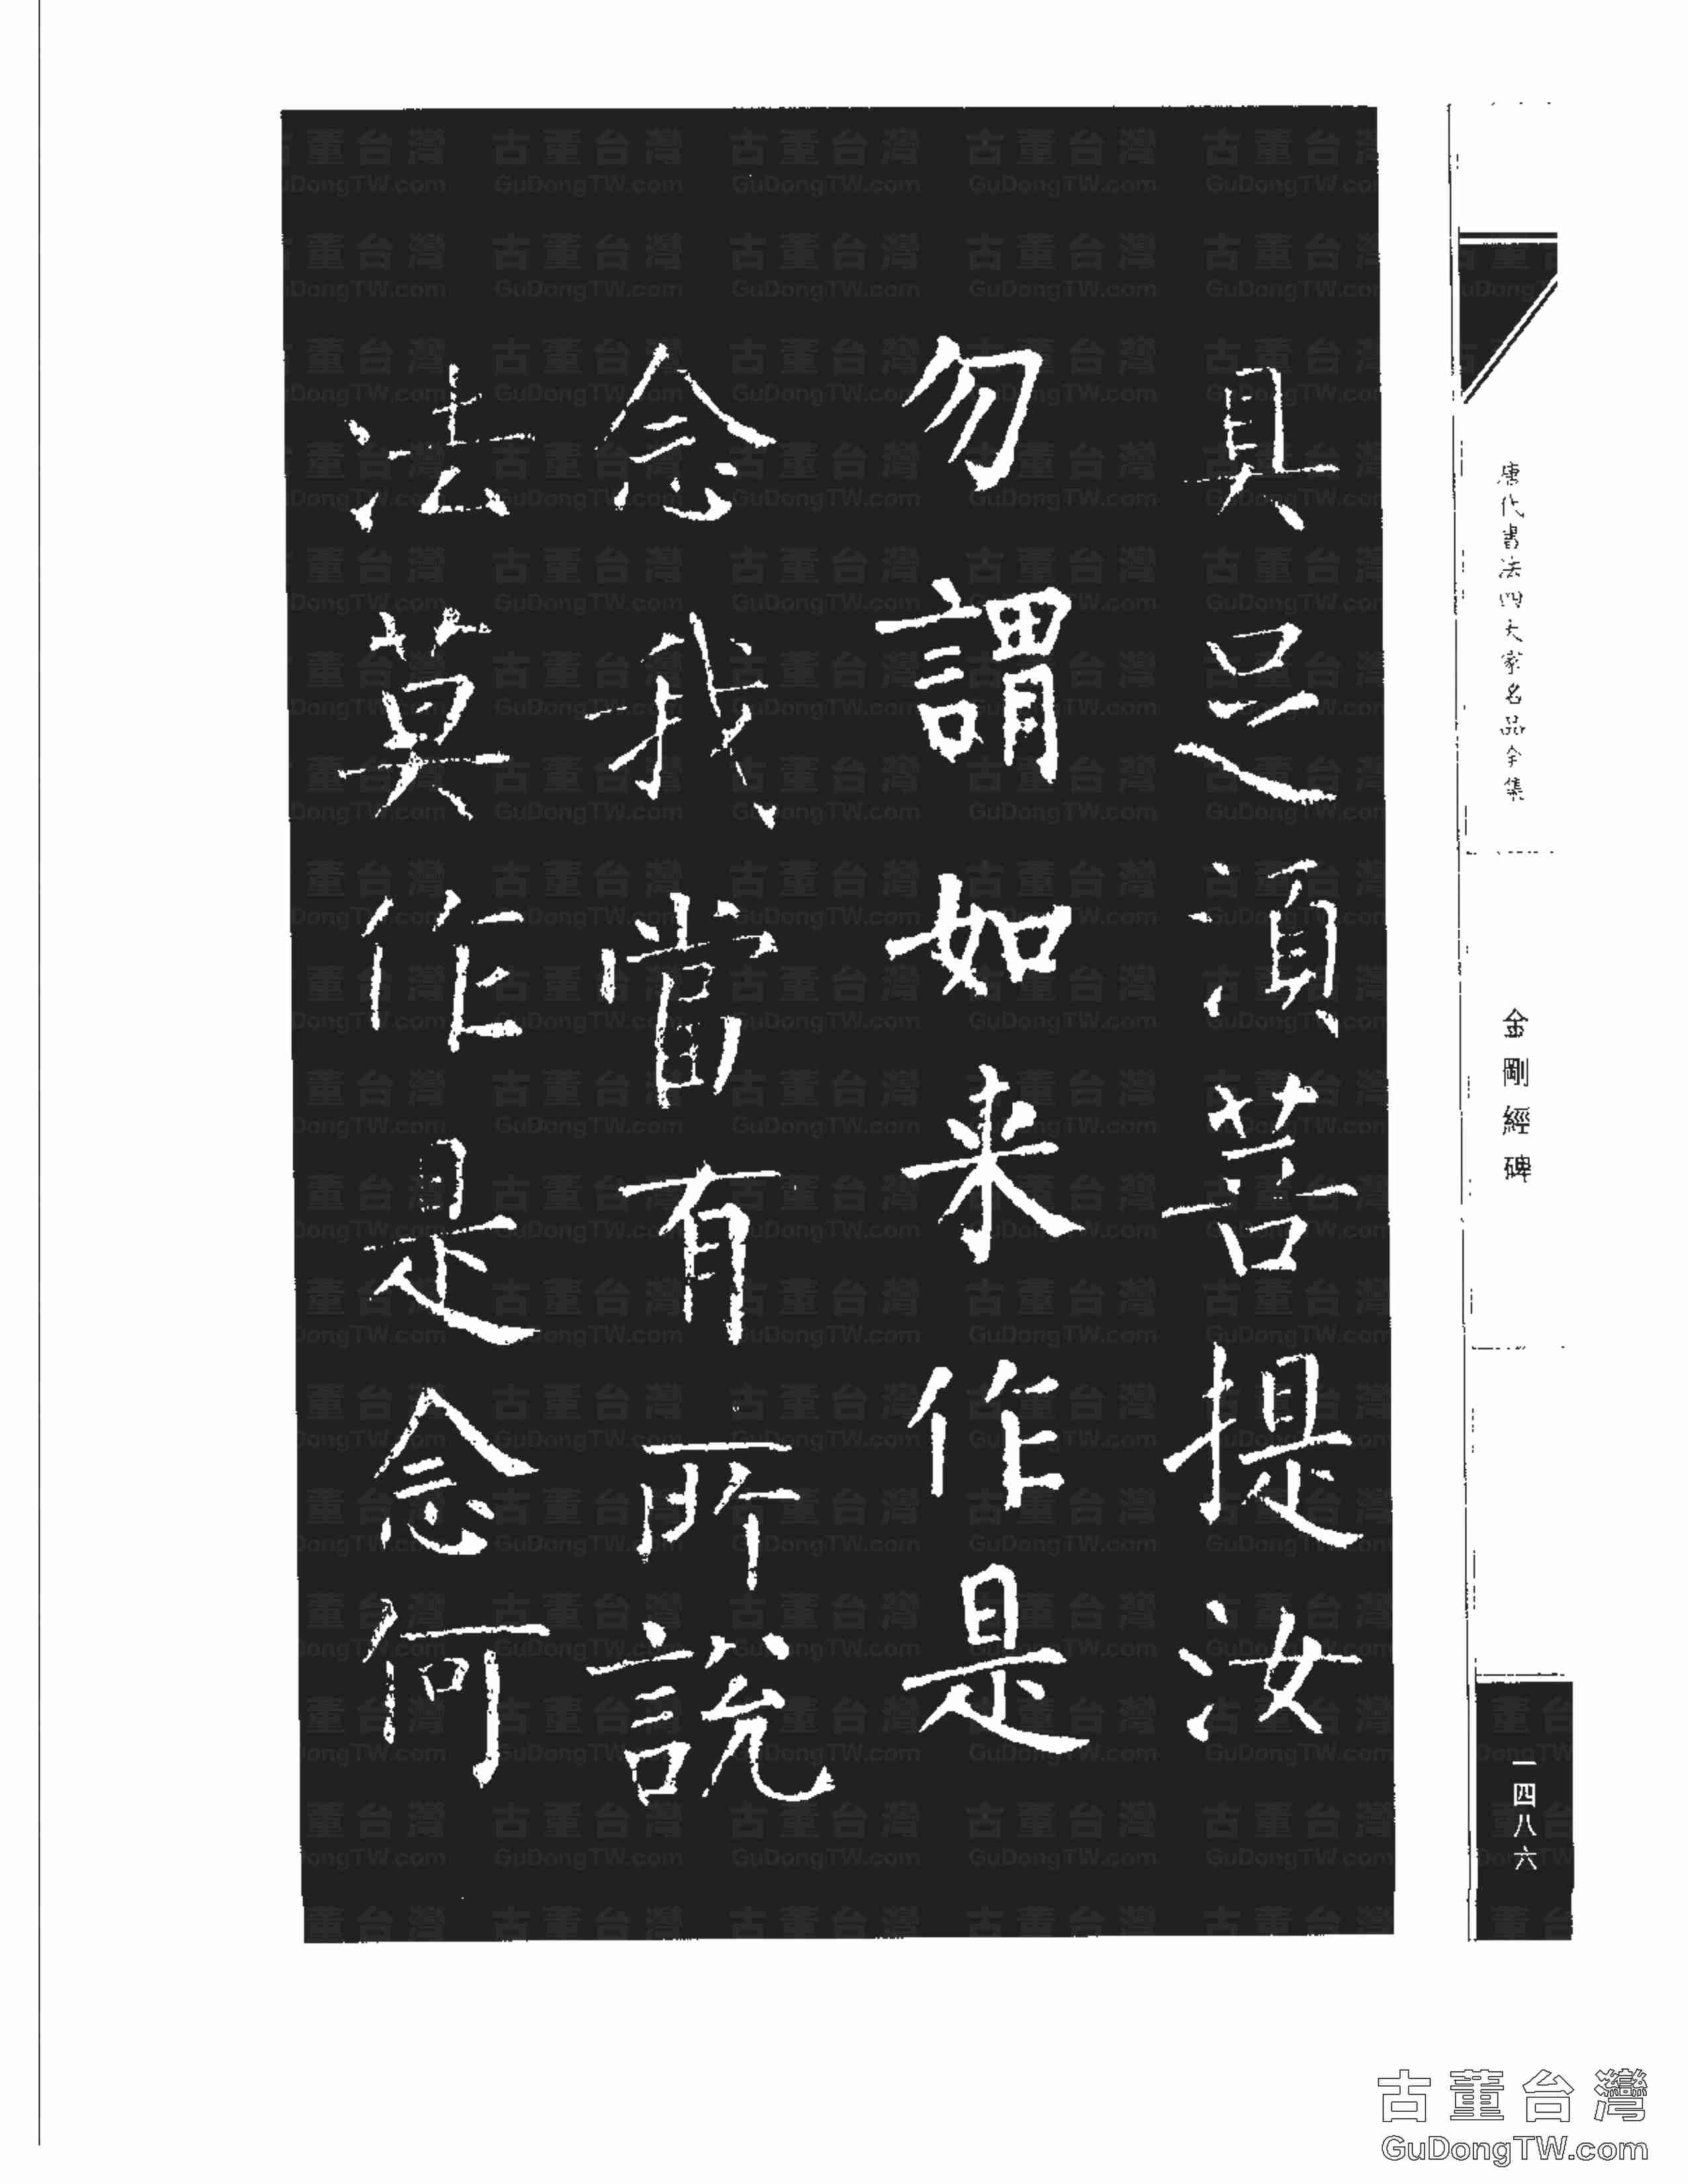 具足須菩提汝
勿謂如来作是
念我當有所說
法莫作是念何
唐代書法四大家名品全集
金剛經碑
一四八六
古董台灣
GuDongTW.com